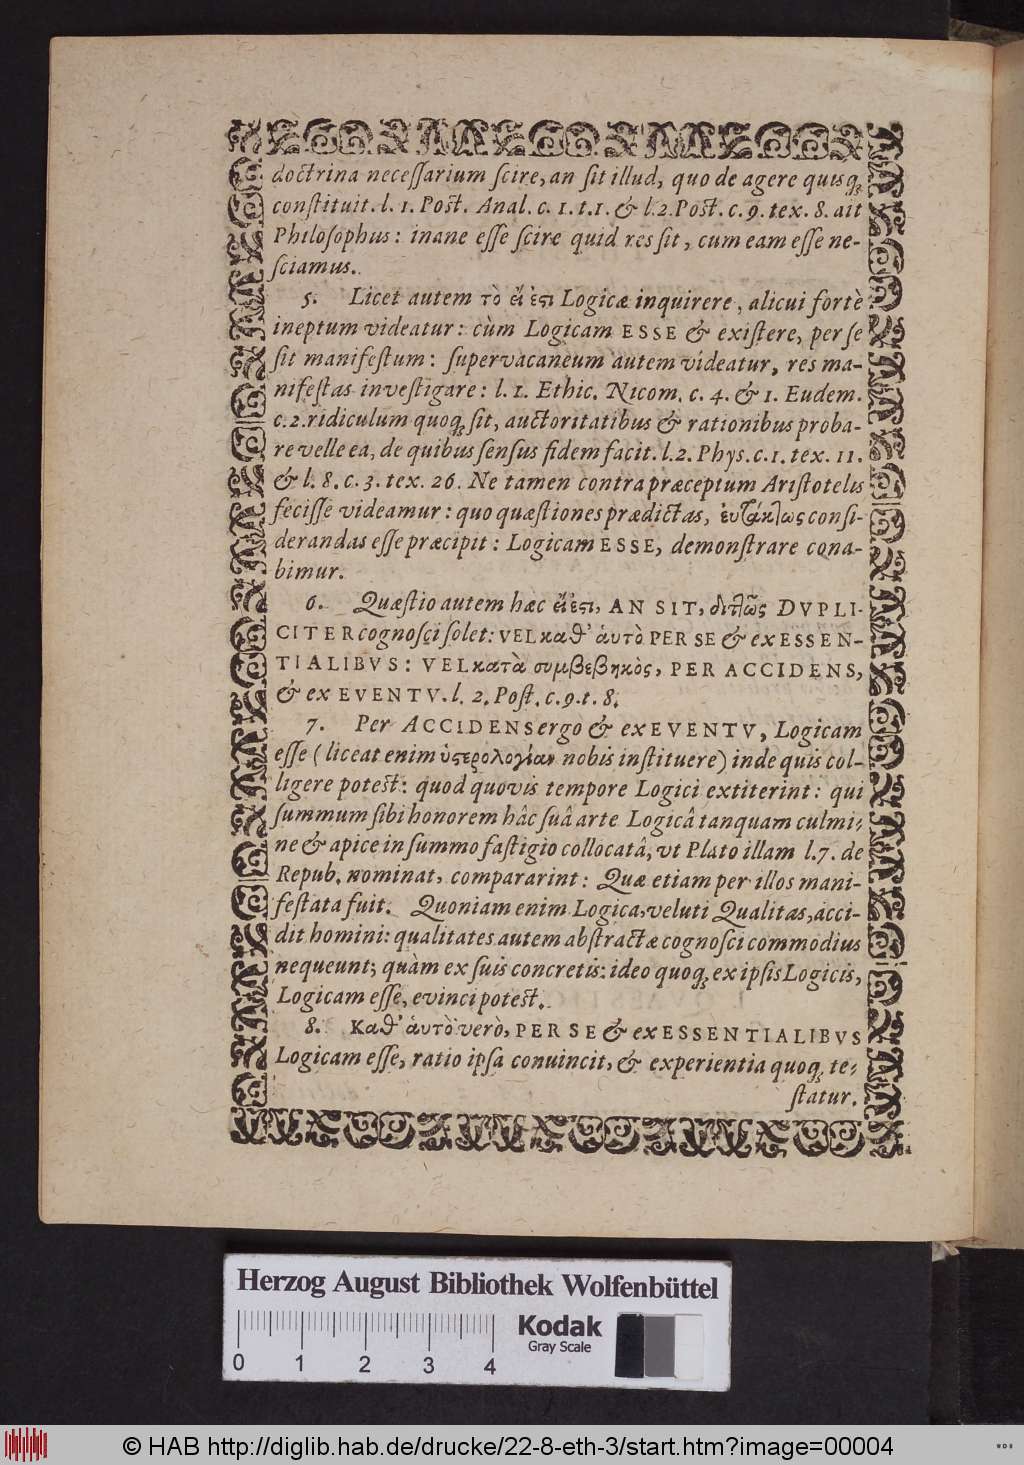 doctrina necessarium scire, an sit illud, quo de agere quisq́;
constituit. l. 1. Post. Anal. c. 1. t. 1. & l. 2. Post. c. 9. tex. 8. ait
Philosophus: inane esse scire quid res sit, cum eam esse ne-
sciamus.
5. Licet autem τὸ εἴ ἐϛι Logicæ inquirere, alicui fortè
ineptum videatur: cùm Logicam ESSE & existere, per se
sit manifestum: supervacaneum autem videatur, res ma-
nifestas investigare: l. 1. Ethic. Nicom. c. 4. & 1. Eudem.
c. 2. ridiculum quoq; sit, auctoritatibus & rationibus proba-
re velle ea, de quibus sensus fidem facit. l. 2. Phys. c. 1. tex. 11.
& l. 8. c. 3. tex. 26. Ne tamen contra præceptum Aristotelis
fecisse videamur: quo quæstiones prædictas, ἐυτάκτως consi-
derandas esse præcipit: Logicam ESSE, demonstrare cona-
bimur.
6. Quæstio autem hæc εἴ ἐϛι, AN SIT, διπλῶς DVPLI-
CITER cognosci solet: VEL καθ' ἁυτὸ PER SE & ex ESSEN-
TIALIBVS: VEL κατὰ συμβεβηκὸς, PER ACCIDENS,
& ex EVENTV. l. 2. Post. c. 9. t. 8.
7. Per ACCIDENS ergo & ex EVENTV, Logicam
esse (liceat enim ὑϛερολογίαν nobis instituere) inde quis col-
ligere potest: quod quovis tempore Logici extiterint: qui
summum sibi honorem hâc suâ arte Logicâ tanquam culmi-
ne & apice in summo fastigio collocatâ, vt Plato illam l. 7. de
Repub. nominat, compararint: Quæ etiam per illos mani-
festata fuit. Quoniam enim Logica, veluti Qualitas, acci-
dit homini: qualitates autem abstractæ cognosci commodius
nequeunt; quàm ex suis concretis: ideo quoq; ex ipsis Logicis,
Logicam esse, evinci potest.
8. Καθ' ἁυτὸ verò, PER SE & ex ESSENTIALIBVS
Logicam esse, ratio ipsa conuincit, & experientia quoq; te-
statur.
Herzog August Bibliothek Wolfenbüttel
Kodak
Gray Scale
0 1 2 3 4
© HAB http://diglib.hab.de/drucke/22-8-eth-3/start.htm?image=00004